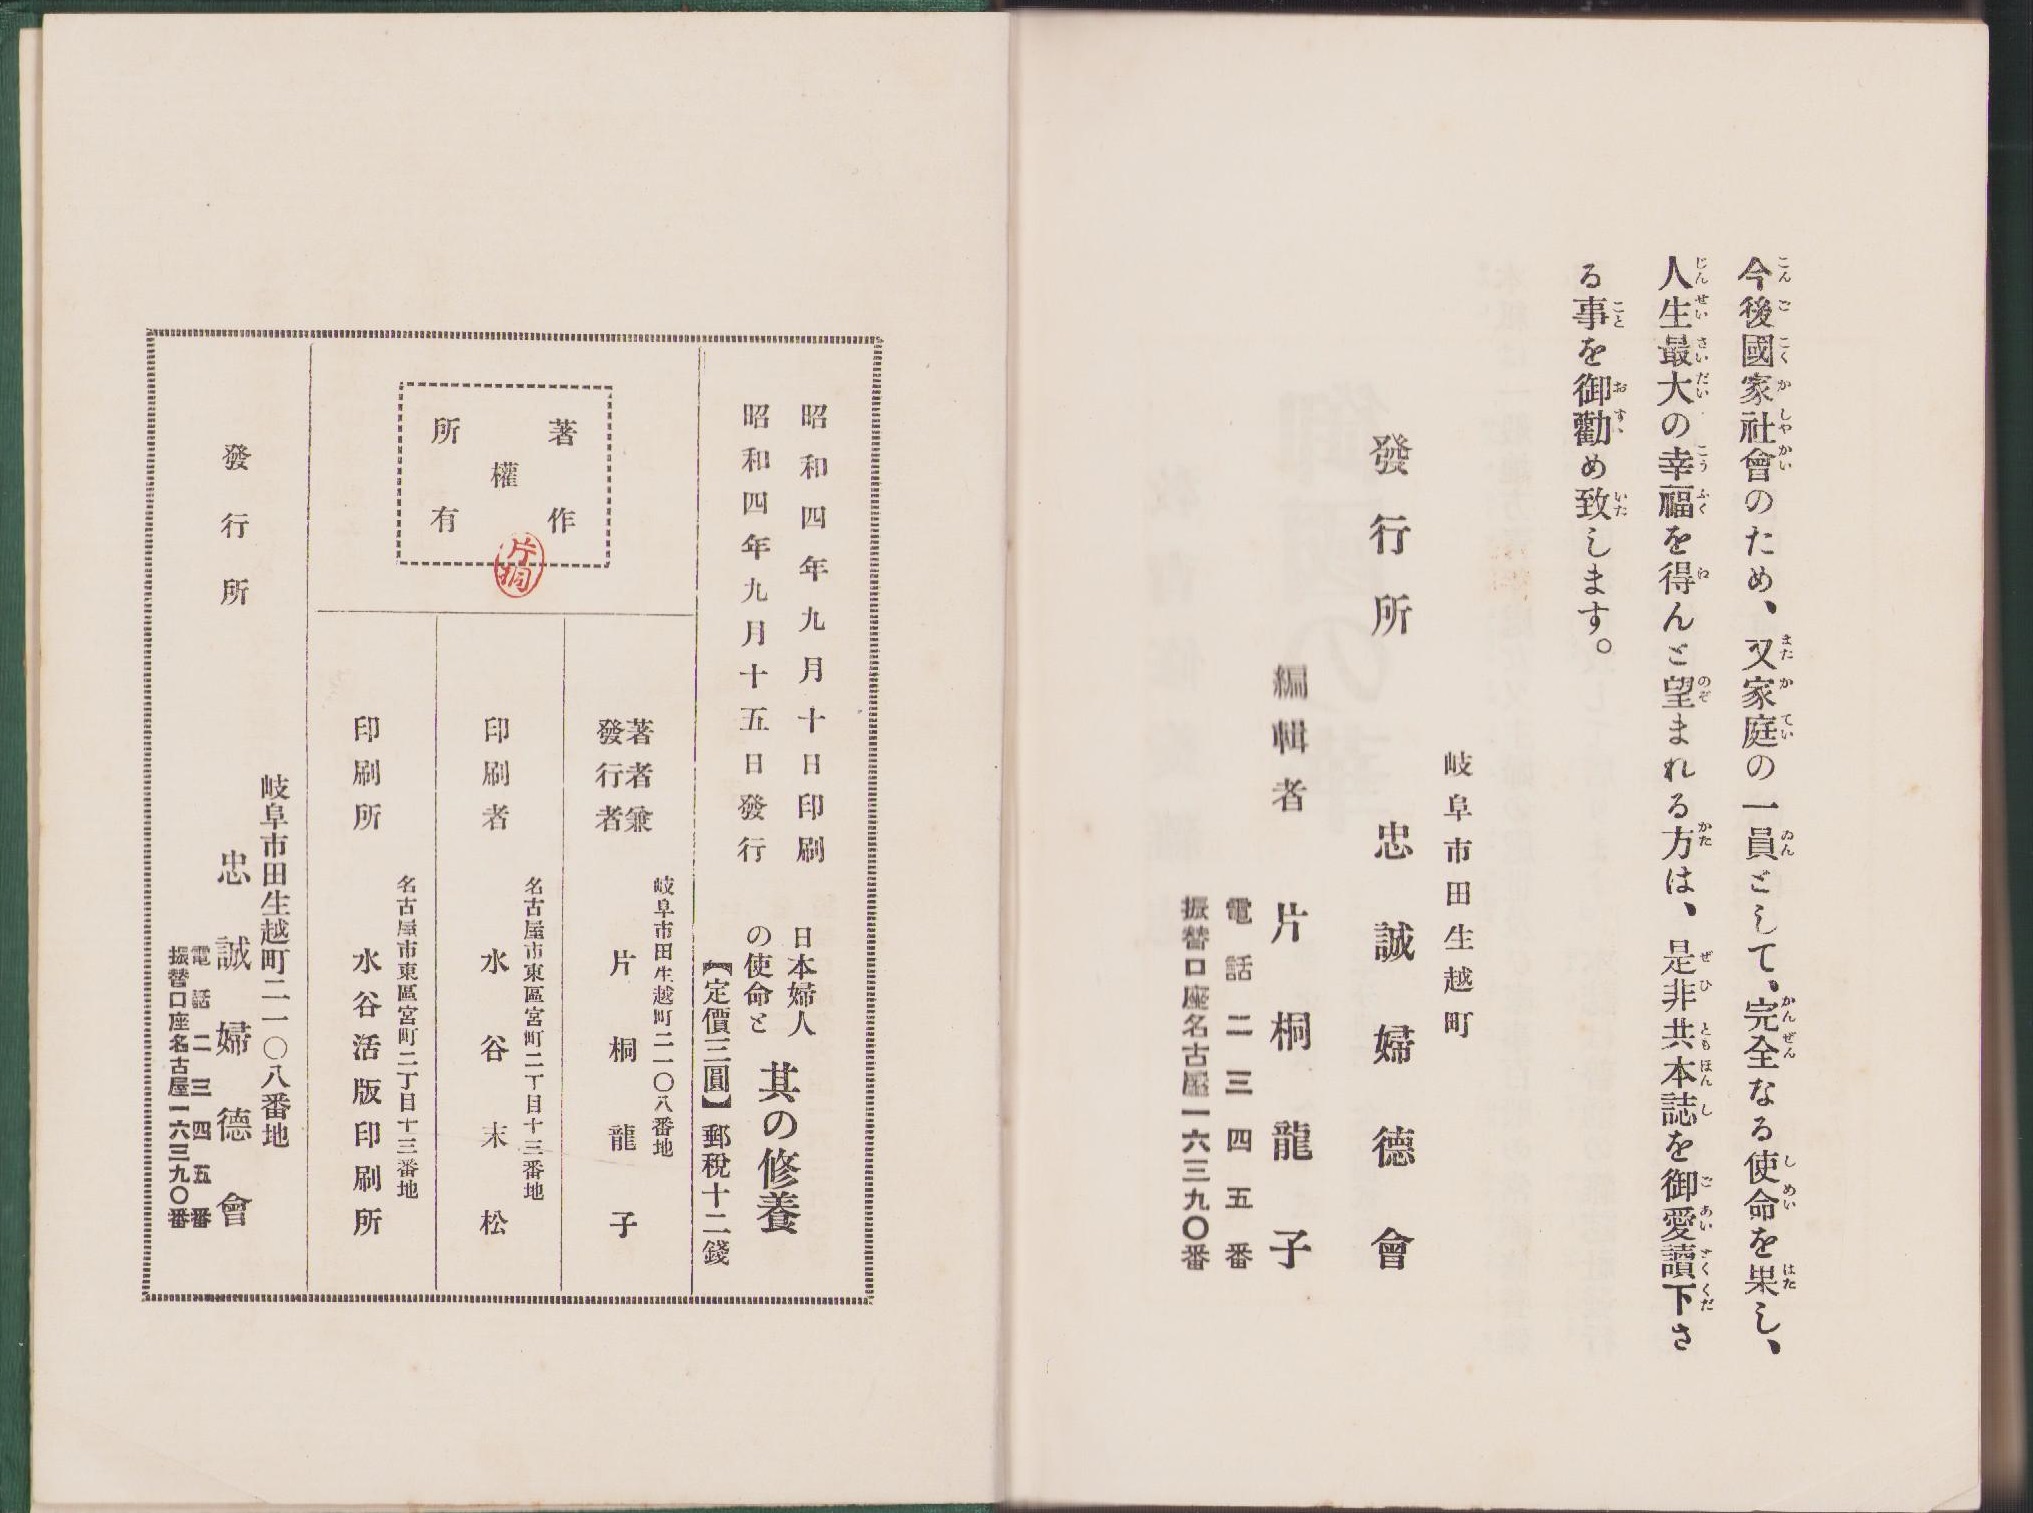 今後國家社會のため、又家庭の一員として、完全なる使命を果し、
人生最大の幸福を得んと望まれる方は、是非共本誌を御愛讀下さ
る事を御勸め致します。
岐阜市田生越町
發行所 忠誠婦德會
編輯者 片桐龍子
電話二三四五番
振替口座名古屋一六三九〇番
昭和四年九月十日印刷
昭和四年九月十五日發行
日本婦人
の使命と
其の修養
【定價三圓】郵稅十二錢
著作
權
所有
片桐
著者兼
發行者
岐阜市田生越町二一〇八番地
片桐龍子
印刷者
名古屋市東區宮町二丁目十三番地
水谷末松
印刷所
名古屋市東區宮町二丁目十三番地
水谷活版印刷所
發行所
岐阜市田生越町二一〇八番地
忠誠婦德會
電話二三四五番
振替口座名古屋一六三九〇番